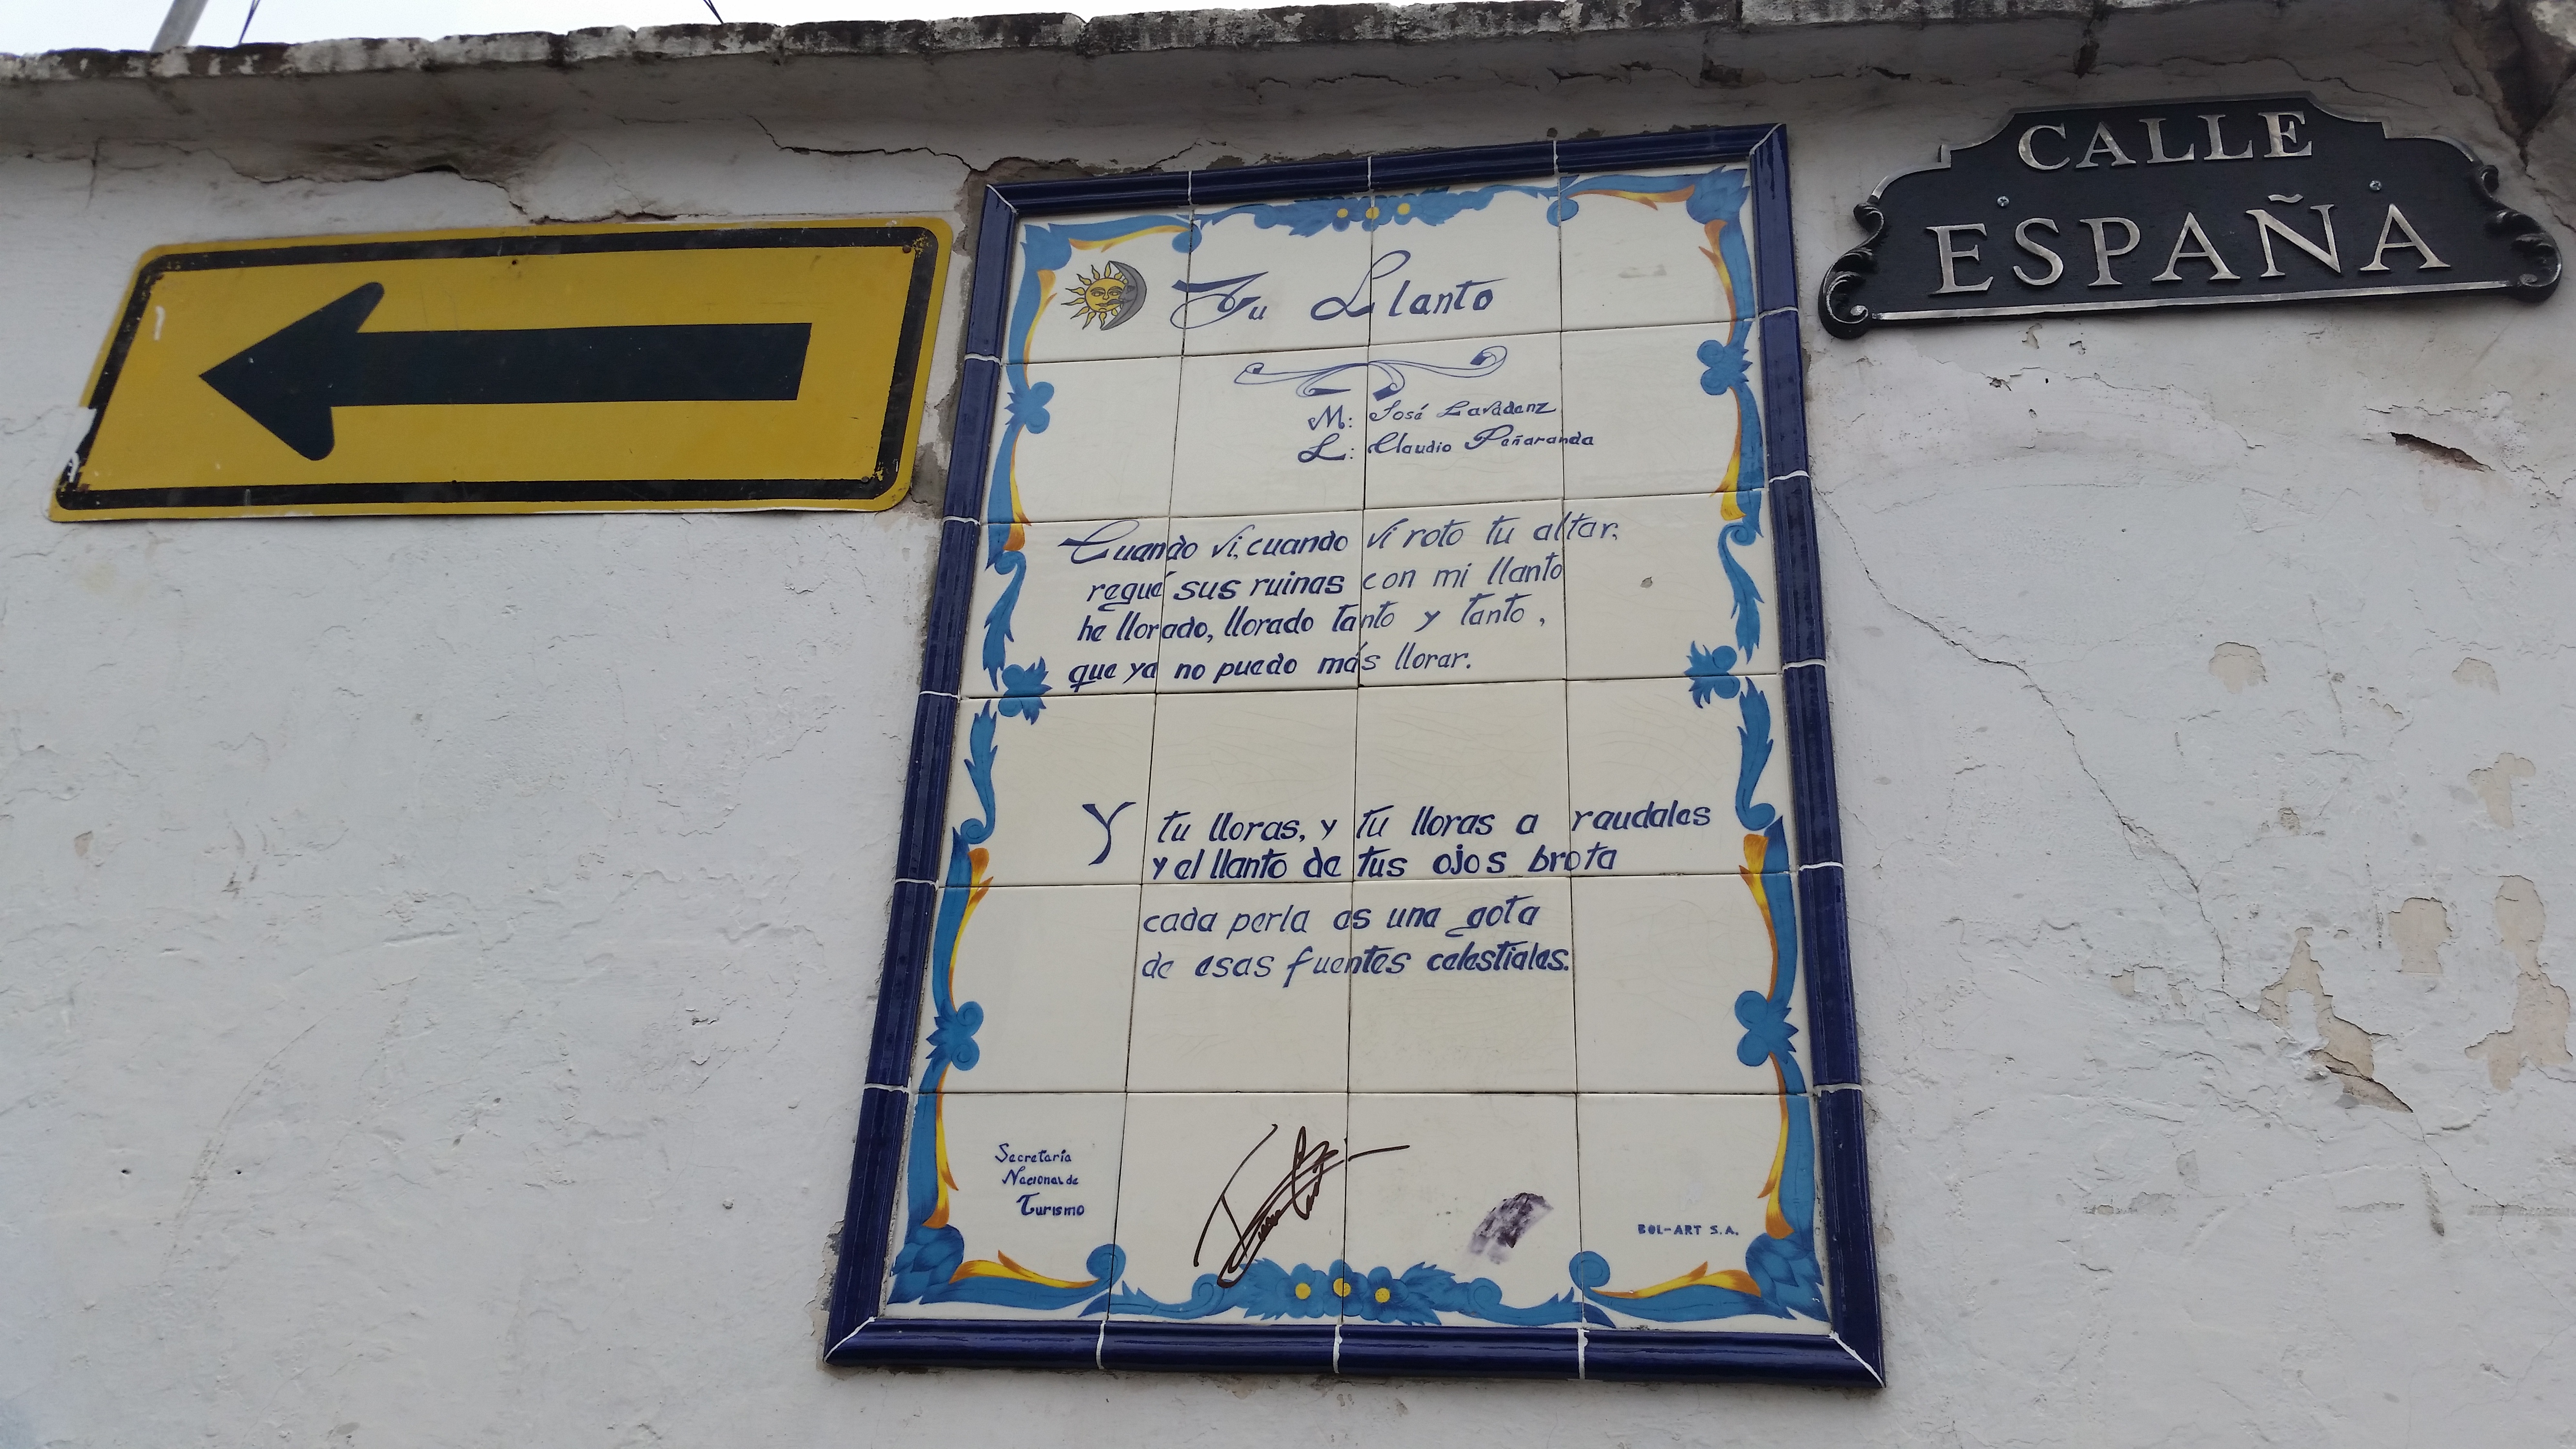 CALLE
ESPAÑA
Tu Llanto
M: José Lavadenz
L: Claudio Peñaranda
Cuando vi, cuando vi roto tu altar,
regué sus ruinas con mi llanto
he llorado, llorado tanto y tanto,
que ya no puedo más llorar.
Y tu lloras, y tu lloras a raudales
y el llanto de tus ojos brota
cada perla es una gota
de esas fuentes celestiales.
Secretaría
Nacional de
Turismo
BOL-ART S.A.